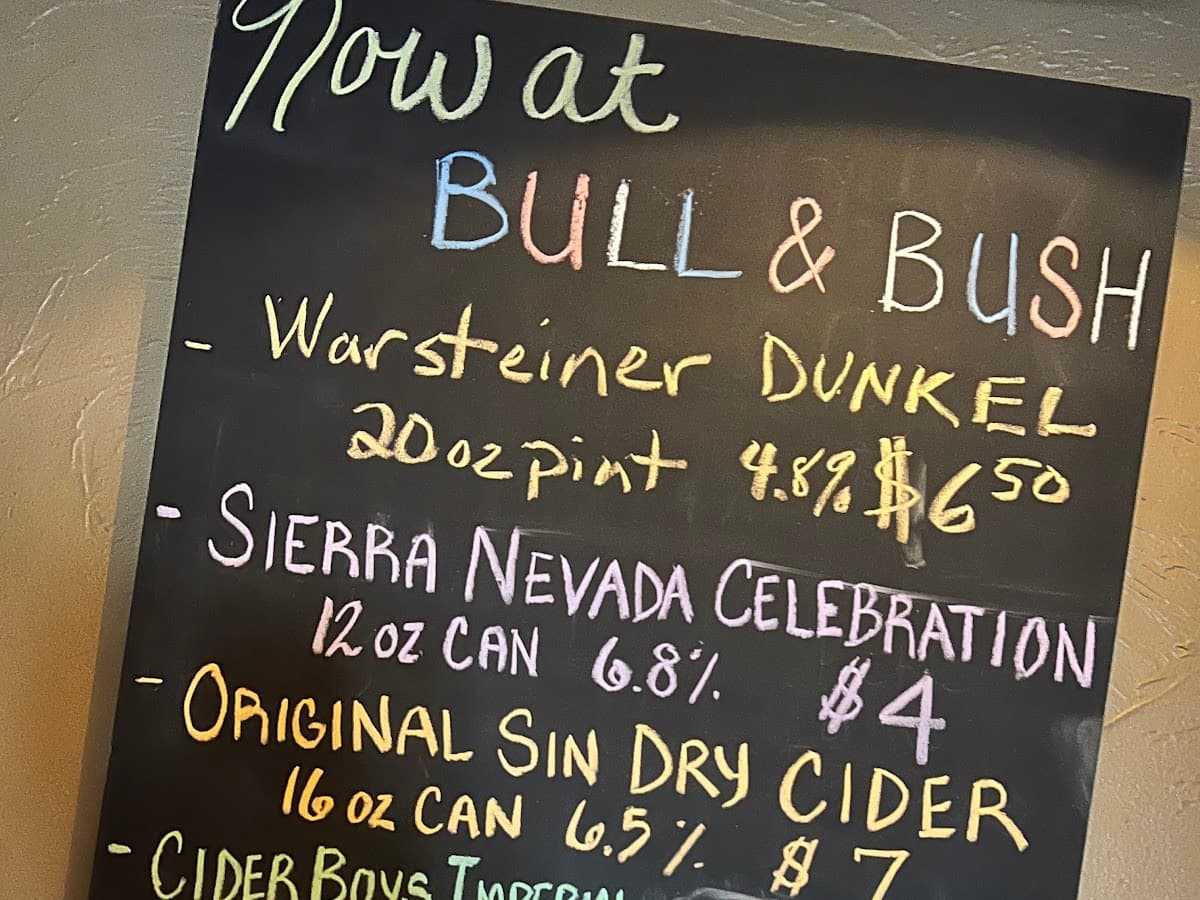 Now at
BULL & BUSH
- Warsteiner DUNKEL
20oz pint 4.8% $6 50
- SIERRA NEVADA CELEBRATION
12 oz CAN 6.8% $4
- ORIGINAL SIN DRY CIDER
16 oz CAN 6.5% $7
- CIDER BOYS